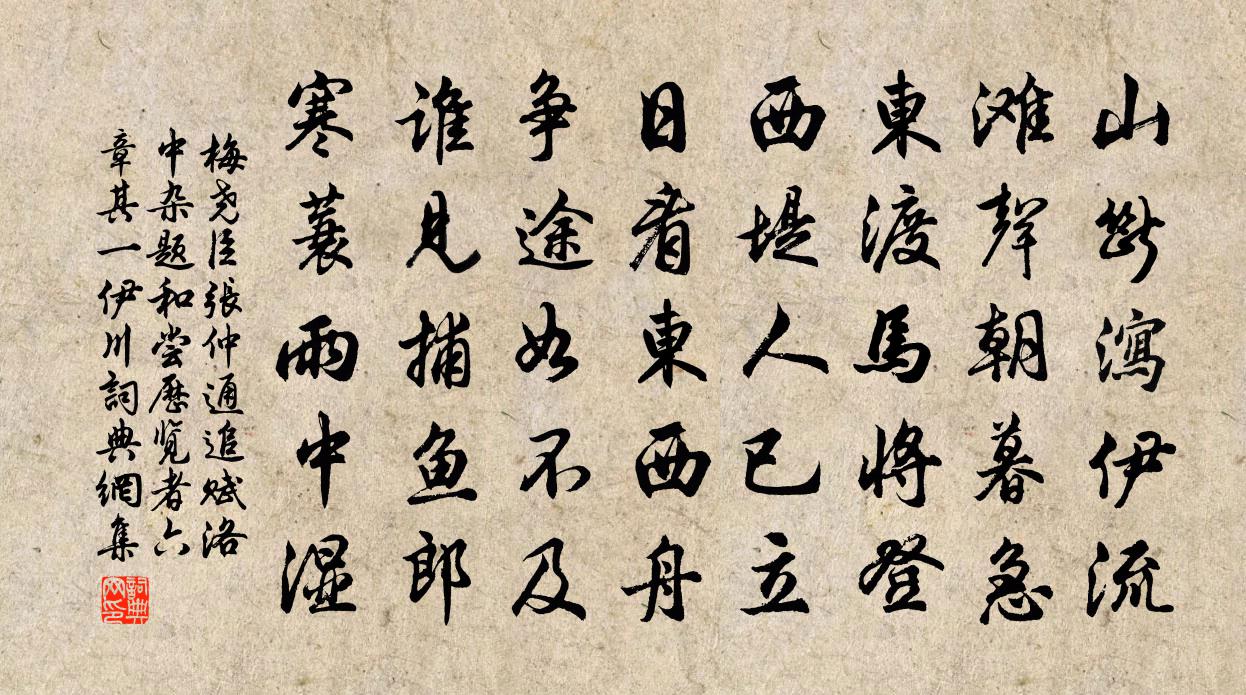 山斷瀉伊流
滩聲朝暮急
東渡馬將登
西堤人已立
日看東西舟
争途如不及
谁見捕鱼郎
寒蓑雨中湿
梅尧臣張仲通追赋洛
中杂题和尝歷览者六
章其一伊川詞典網集
詞典
网印